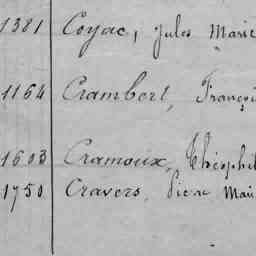 1381 Coyac, Jules Marie
1164 Crambert, Franço
1603 Cramoux, Théophil
1750 Cravers, Marie